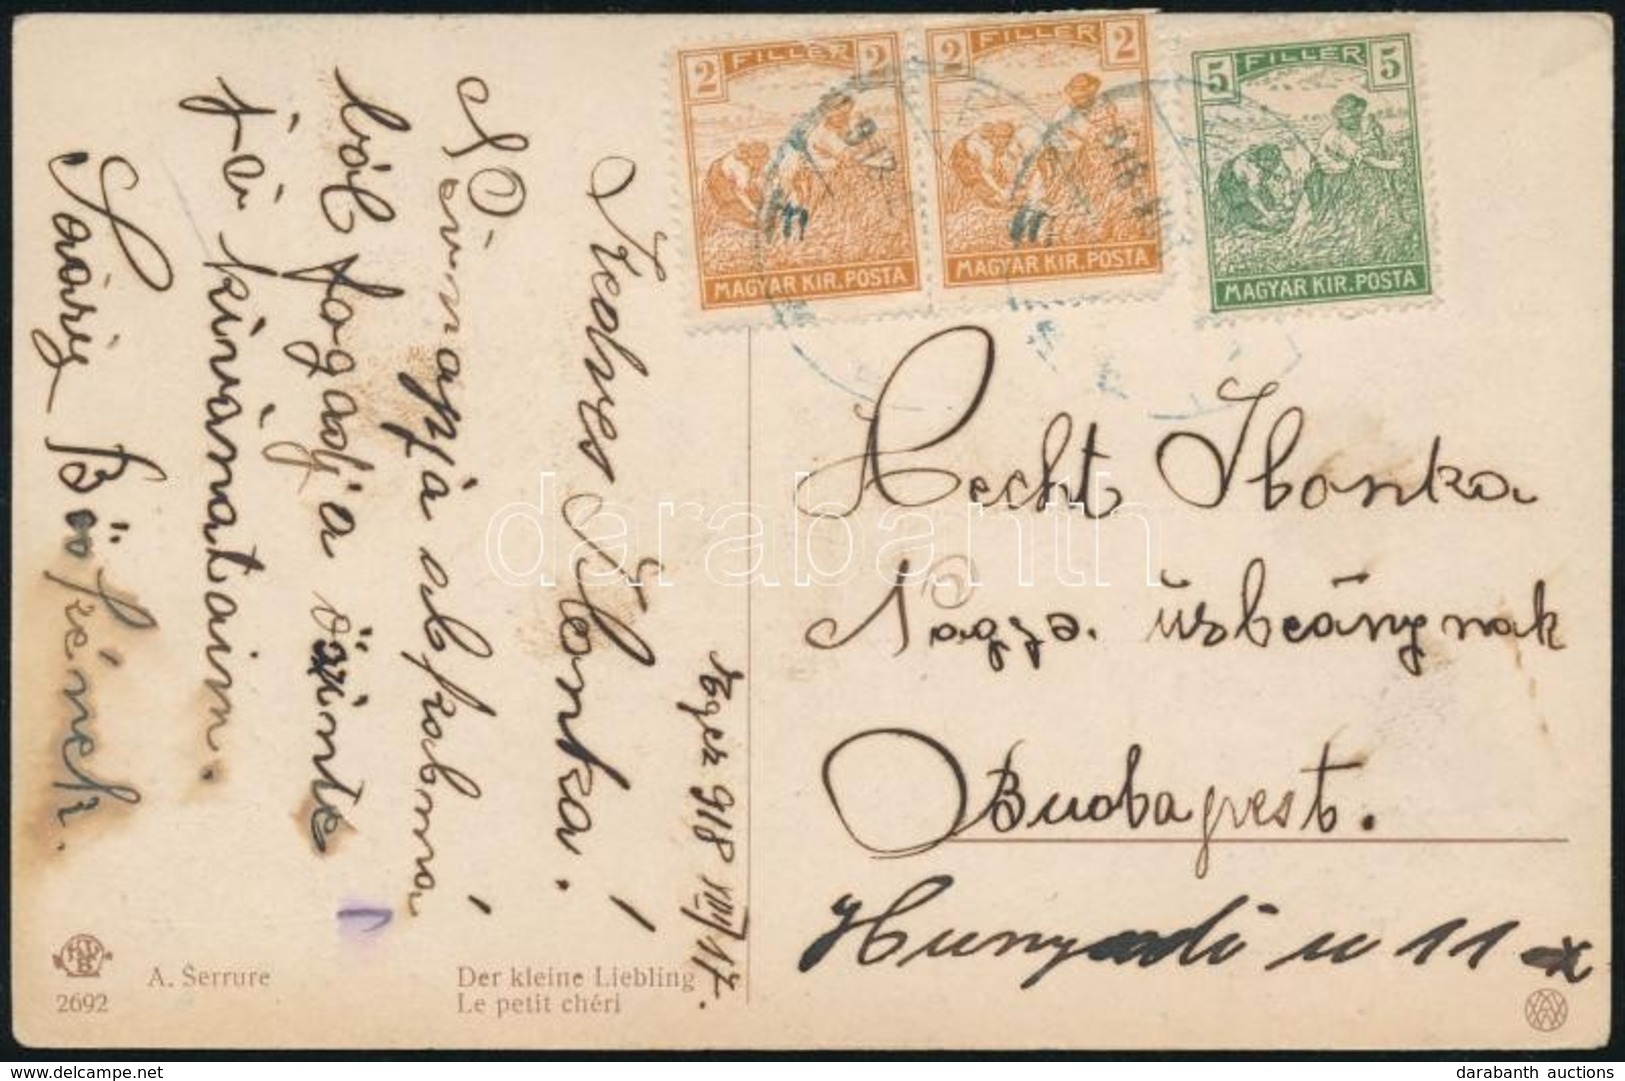 2 FILLÉR 2
MAGYAR KIR. POSTA
2 FILLÉR 2
MAGYAR KIR. POSTA
5 FILLÉR 5
MAGYAR KIR. POSTA
918 VIII/17.
Kedves Ilonka!
Névnapja alkalmá
ból fogadja őszinte
jó kívánataim.
Hecht Ilonka
Nagys. úrleánynak
Budapest.
Hunyadi u 11
A. Serrure
2692
Der kleine Liebling
Le petit chéri
darabanth
darabanth auctions